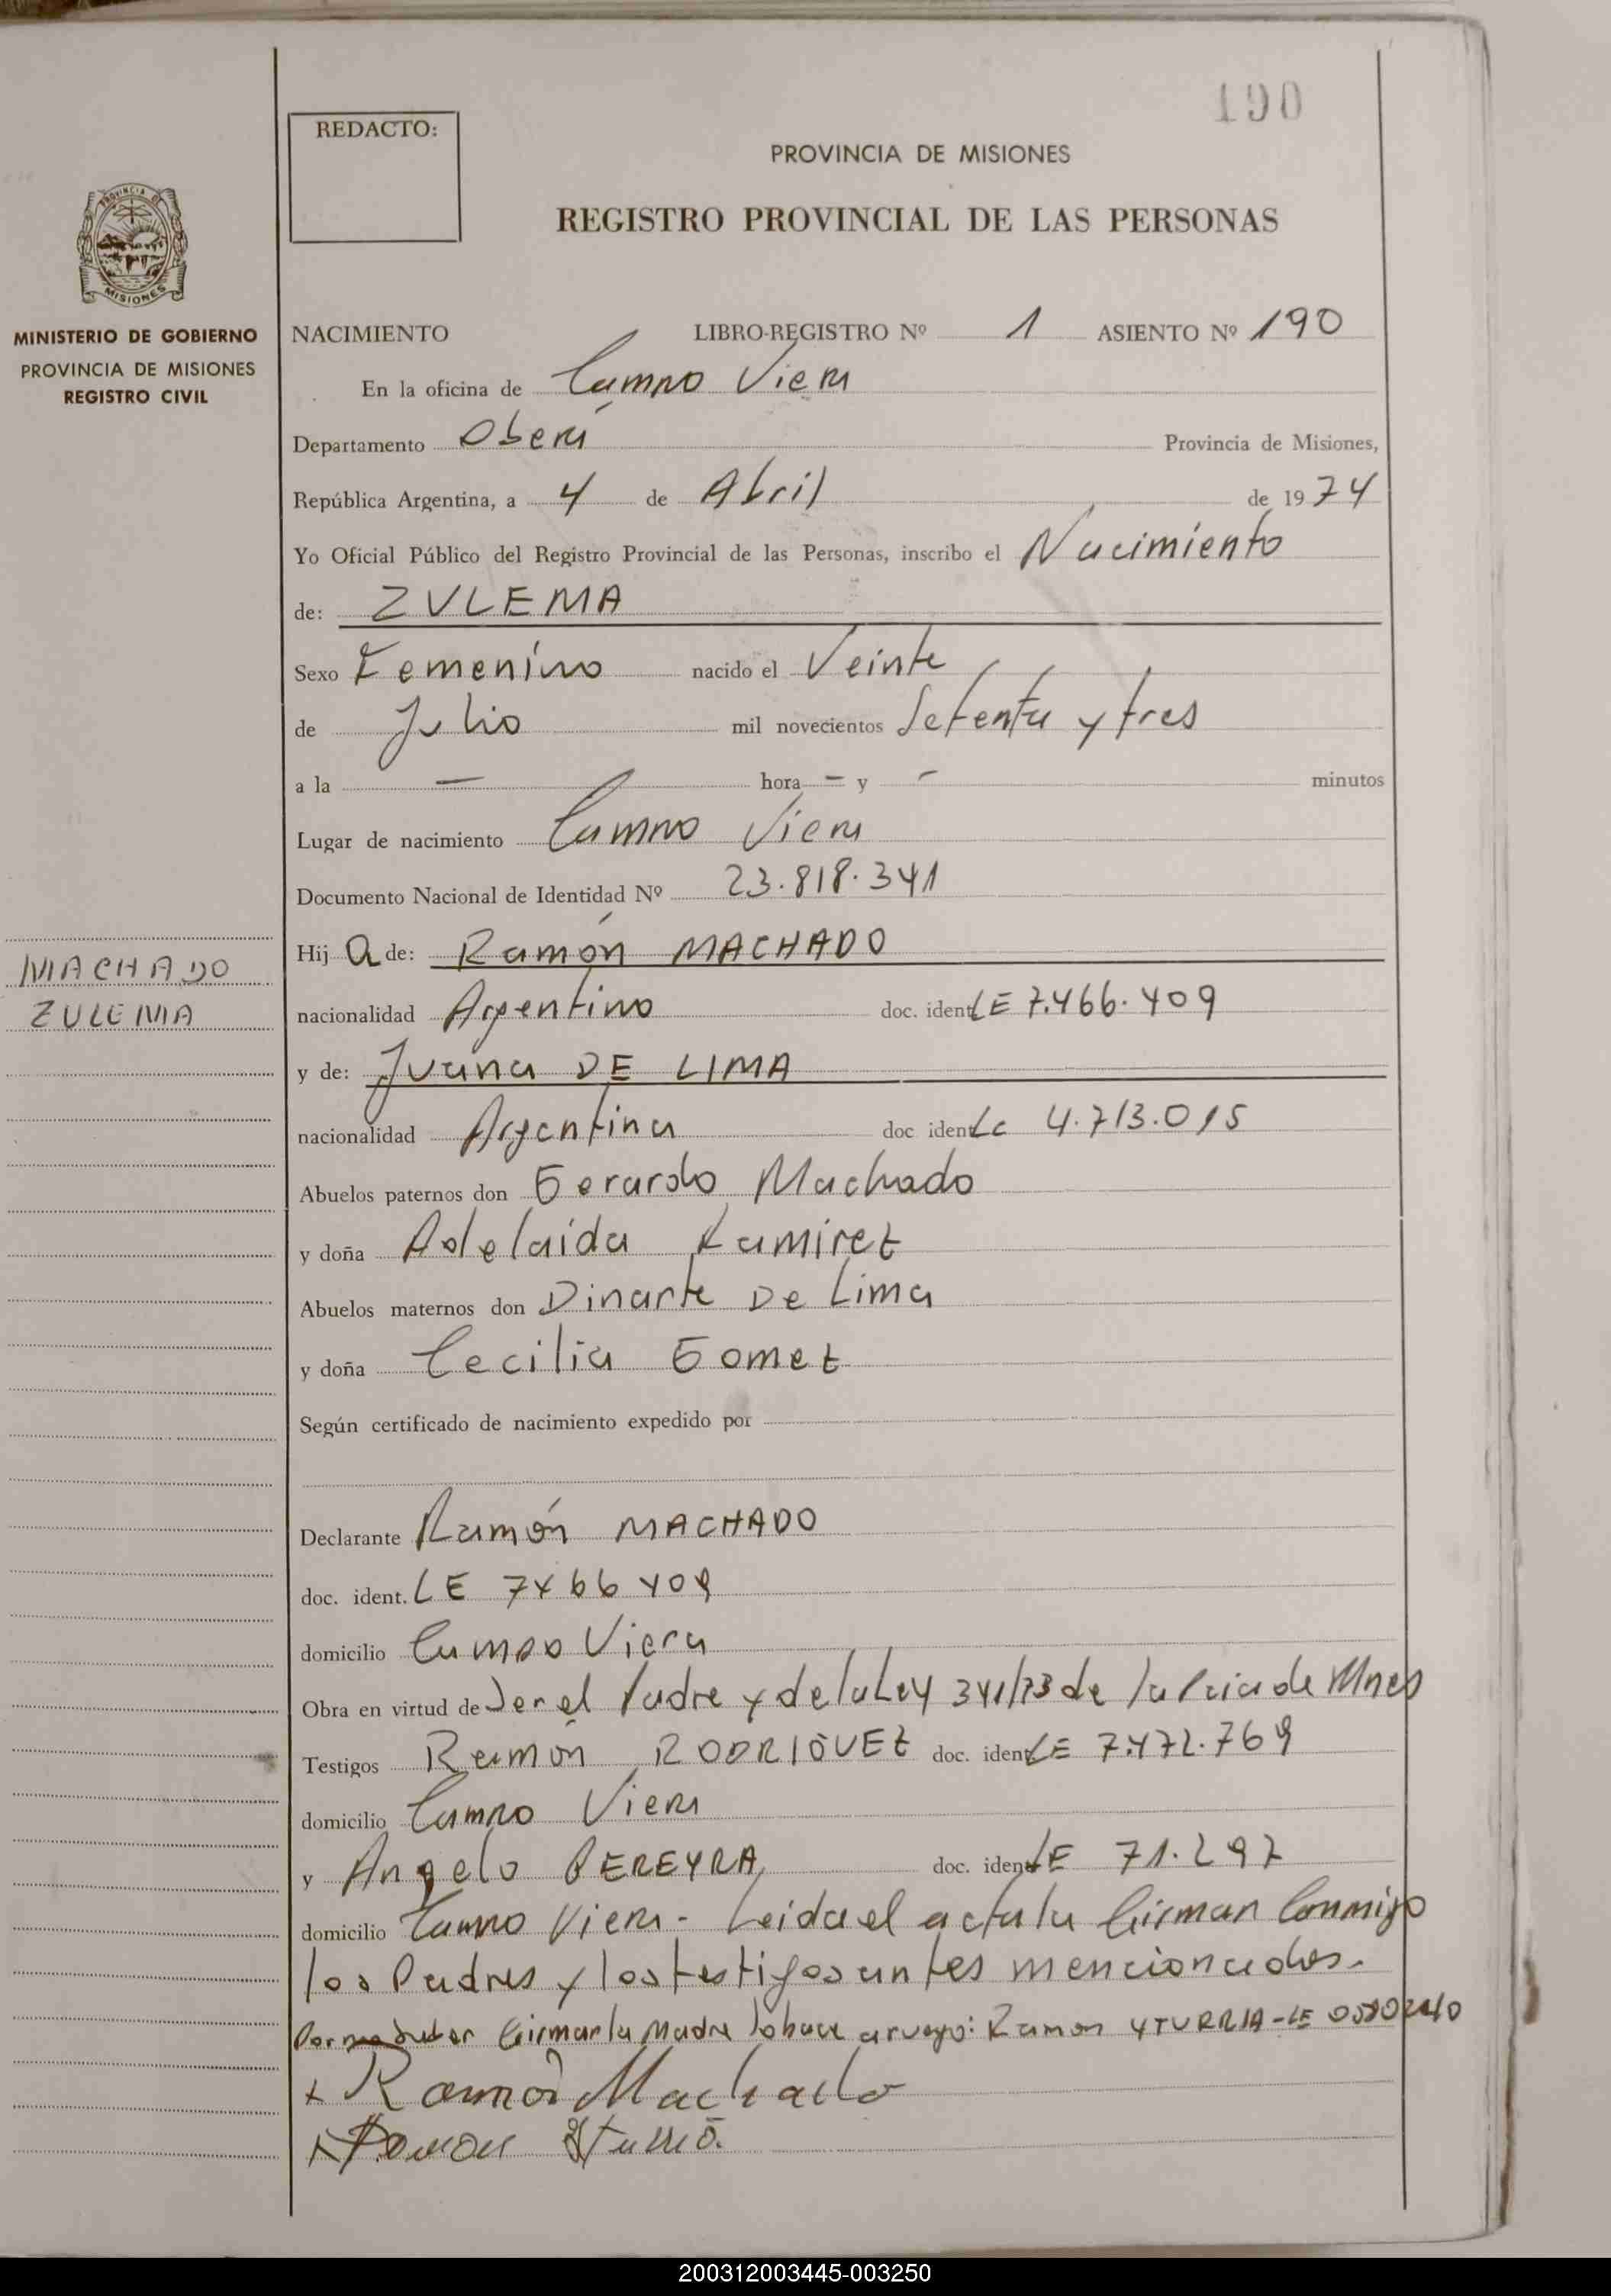 190
REDACTO:
PROVINCIA DE MISIONES
REGISTRO PROVINCIAL DE LAS PERSONAS
PROVINCIA DE
MISIONES
MINISTERIO DE GOBIERNO
PROVINCIA DE MISIONES
REGISTRO CIVIL
NACIMIENTO LIBRO-REGISTRO Nº 1 ASIENTO Nº 190
En la oficina de Campo Viera
Departamento Oberá Provincia de Misiones,
República Argentina, a 4 de Abril de 1974
Yo Oficial Público del Registro Provincial de las Personas, inscribo el Nacimiento
de: ZULEMA
Sexo Femenino nacido el Veinte
de Julio mil novecientos Setenta y tres
a la — hora — y — minutos
Lugar de nacimiento Campo Viera
Documento Nacional de Identidad Nº 23.818.341
MACHADO
ZULEMA
Hija de: Ramón MACHADO
nacionalidad Argentino doc. ident LE 7.466.409
y de: Juana DE LIMA
nacionalidad Argentina doc ident Lc 4.713.015
Abuelos paternos don Gerardo Machado
y doña Adelaida Ramirez
Abuelos maternos don Dinarte De Lima
y doña Cecilia Gomez
Según certificado de nacimiento expedido por
Declarante Ramón MACHADO
doc. ident. LE 7466409
domicilio Campo Viera
Obra en virtud de Ser el Padre y de la Ley 341/73 de la Pcia de Mnes
Testigos Ramón RODRIGUEZ doc. ident LE 7.472.769
domicilio Campo Viera
y Angelo PEREYRA doc. ident LE 71.297
domicilio Campo Viera - Leida el acta la firman Conmigo
los Padres y los testigos antes mencionados.
Por no saber firmar la Madre lo hace a ruego: Ramon YTURRIA - LE
x Ramón Machado
x Ramon
200312003445-003250